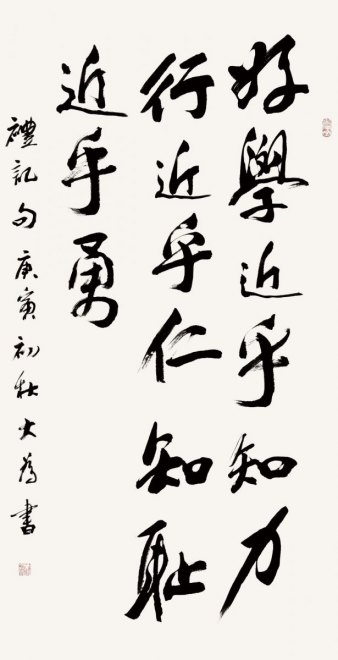 好學近乎知力
行近乎仁知恥
近乎勇
禮記句庚寅初秋大為書